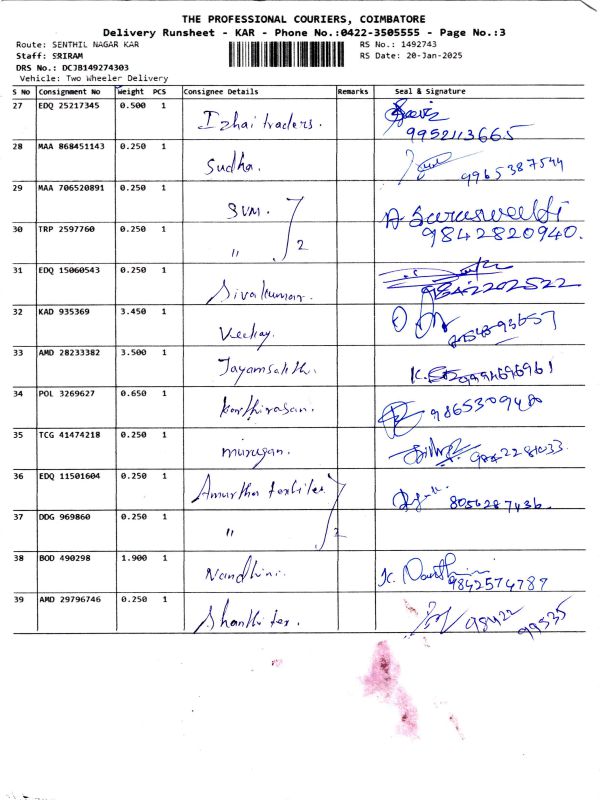 THE PROFESSIONAL COURIERS, COIMBATORE
Delivery Runsheet - KAR - Phone No.:0422-3505555 - Page No.:3
Route: SENTHIL NAGAR KAR
RS No.: 1492743
Staff: SRIRAM
RS Date: 20-Jan-2025
DRS No.: DCJB149274303
Vehicle: Two Wheeler Delivery
S No Consignment No Weight PCS Consignee Details Remarks Seal & Signature
27 EDQ 25217345 0.500 1 Izhai traders.
9952113665
28 MAA 868451143 0.250 1 Sudha.
9965387544
29 MAA 706520891 0.250 1 SVM.
A Saraswathi
30 TRP 2597760 0.250 1 " 2 9842820940.
31 EDQ 15060543 0.250 1 Sivakumar.
32 KAD 935369 3.450 1 Veekay.
33 AMD 28233382 3.500 1 Jayamsakthi.
34 POL 3269627 0.650 1 Karthirasan.
9865309480
35 TCG 41474218 0.250 1 murugan.
9842281033.
36 EDQ 11501604 0.250 1 Amurtha textiles
8056287436.
37 DDG 969860 0.250 1 " 2
38 BOD 490298 1.900 1 Nandhini.
9842574787
39 AMD 29796746 0.250 1 Shanthi tex.
98422
99535